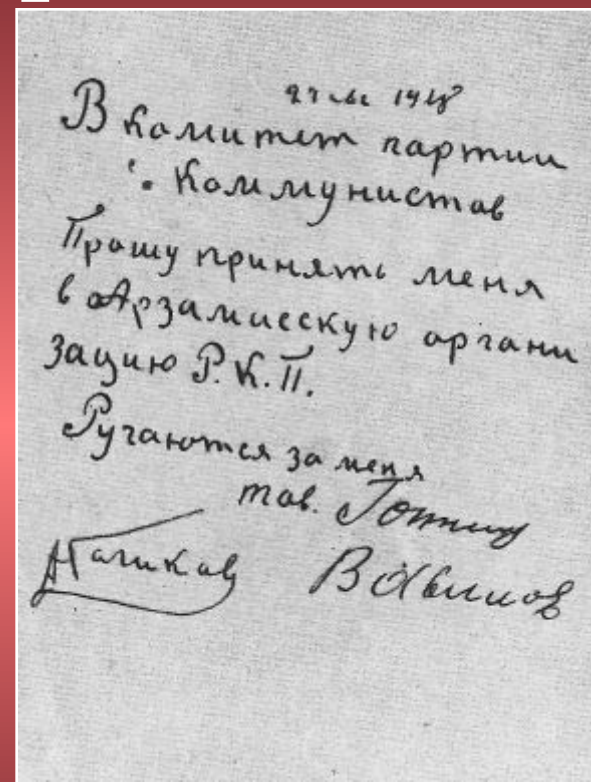 27 1918
В комитет партии
Коммунистов
Прошу принять меня
в Арзамасскую органи
зацию Р.К.П.
Ручаются за меня
тов.
АГоликов Вавилов